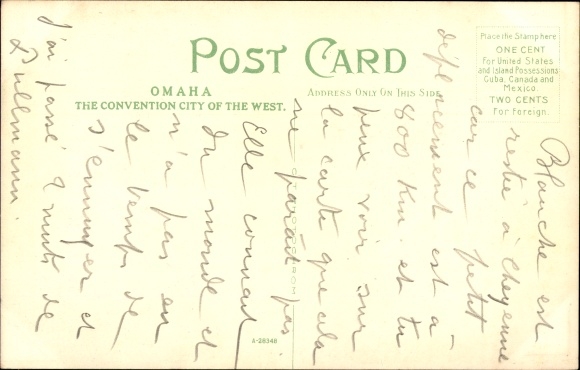 POST CARD
OMAHA
THE CONVENTION CITY OF THE WEST.
ADDRESS ONLY ON THIS SIDE
Place the Stamp here
ONE CENT
For United States
and Island Possessions
Cuba, Canada and
Mexico.
TWO CENTS
For Foreign.
A-28348
Blanche est
restée à Cheyenne
car ce petit
déplacement est à
800 Km. et tu
peux voir sur
la carte que cela
ne paraît pas
Elle connait
du monde et
n'a pas eu
le temps de
s'ennuyer et
J'ai passé 9 nuits de
Pullmann.